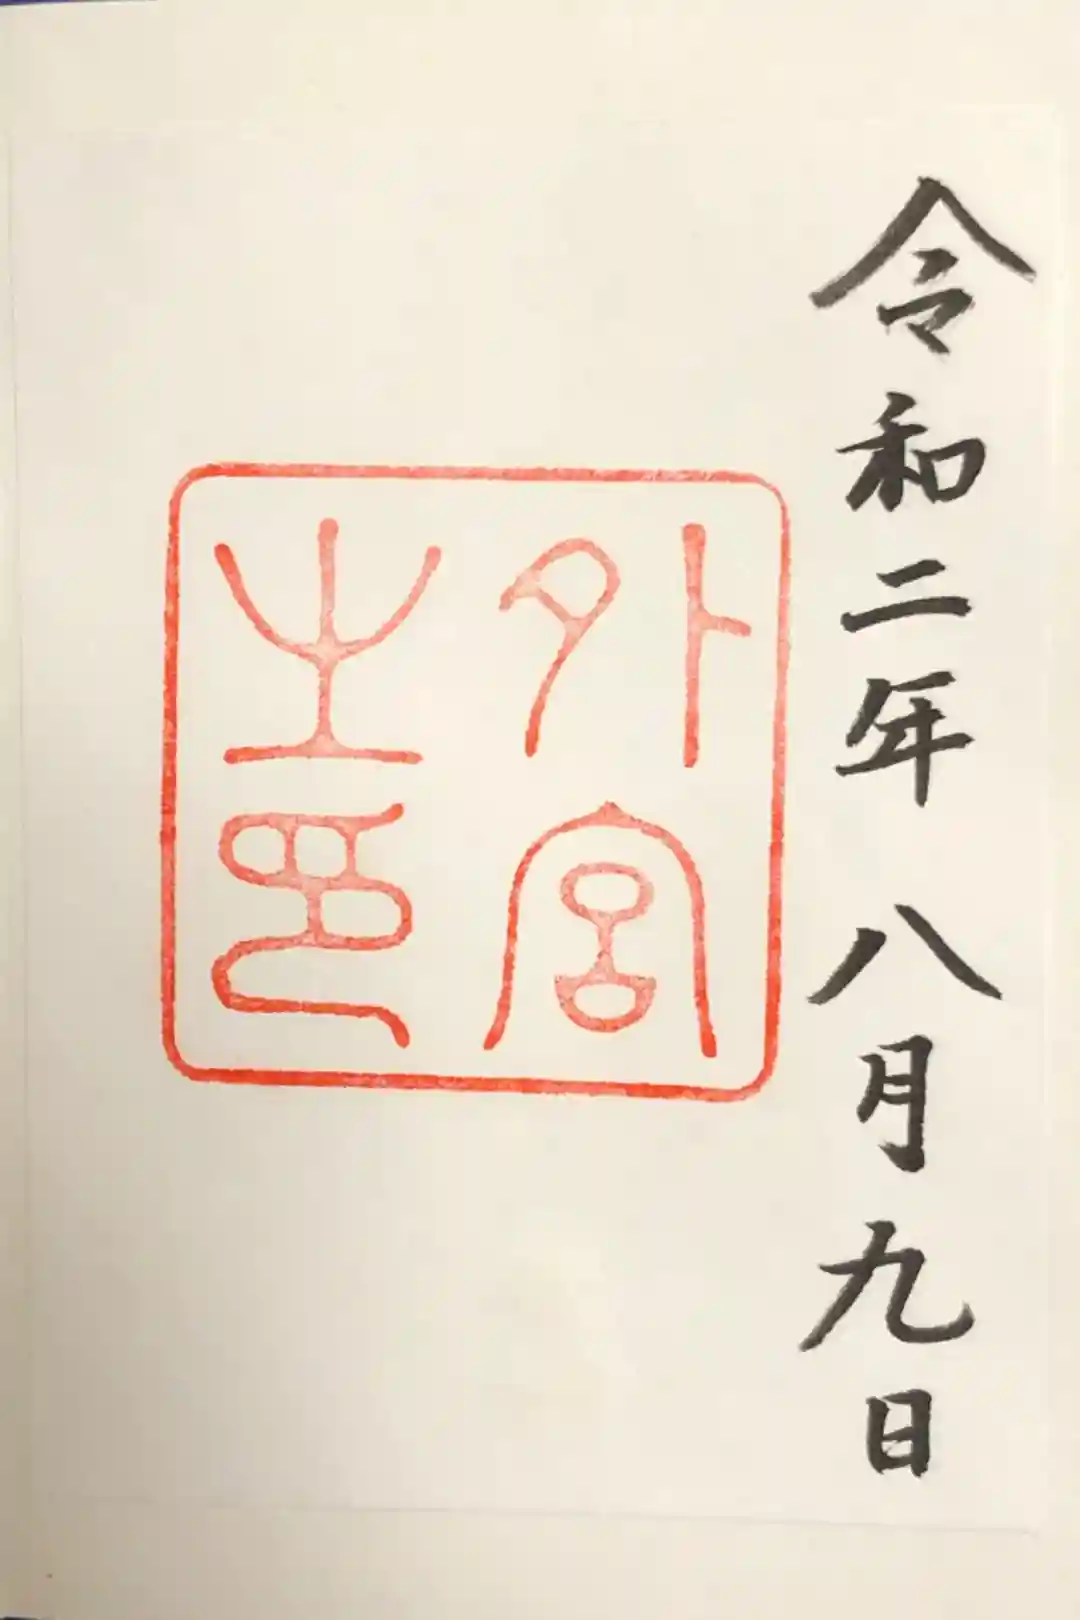 令和二年 八月九日
外宮
之印